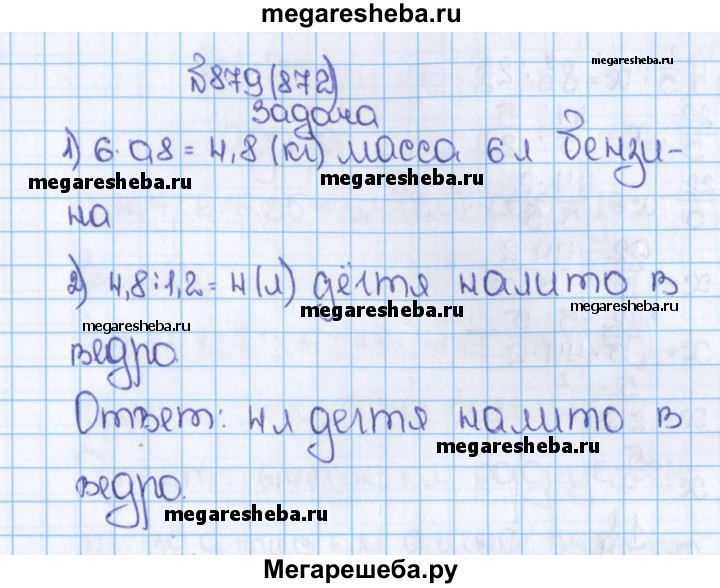 megaresheba.ru
№879(872)
megaresheba.ru
Задача
1) 6·0,8=4,8(кг) масса 6л бензи-
megaresheba.ru
megaresheba.ru
на
2) 4,8:1,2=4(л) дёгтя налито в
megaresheba.ru
megaresheba.ru
megaresheba.ru
ведро
Ответ: 4л дегтя налито в
megaresheba.ru
ведро.
megaresheba.ru
Мегарешеба.ру